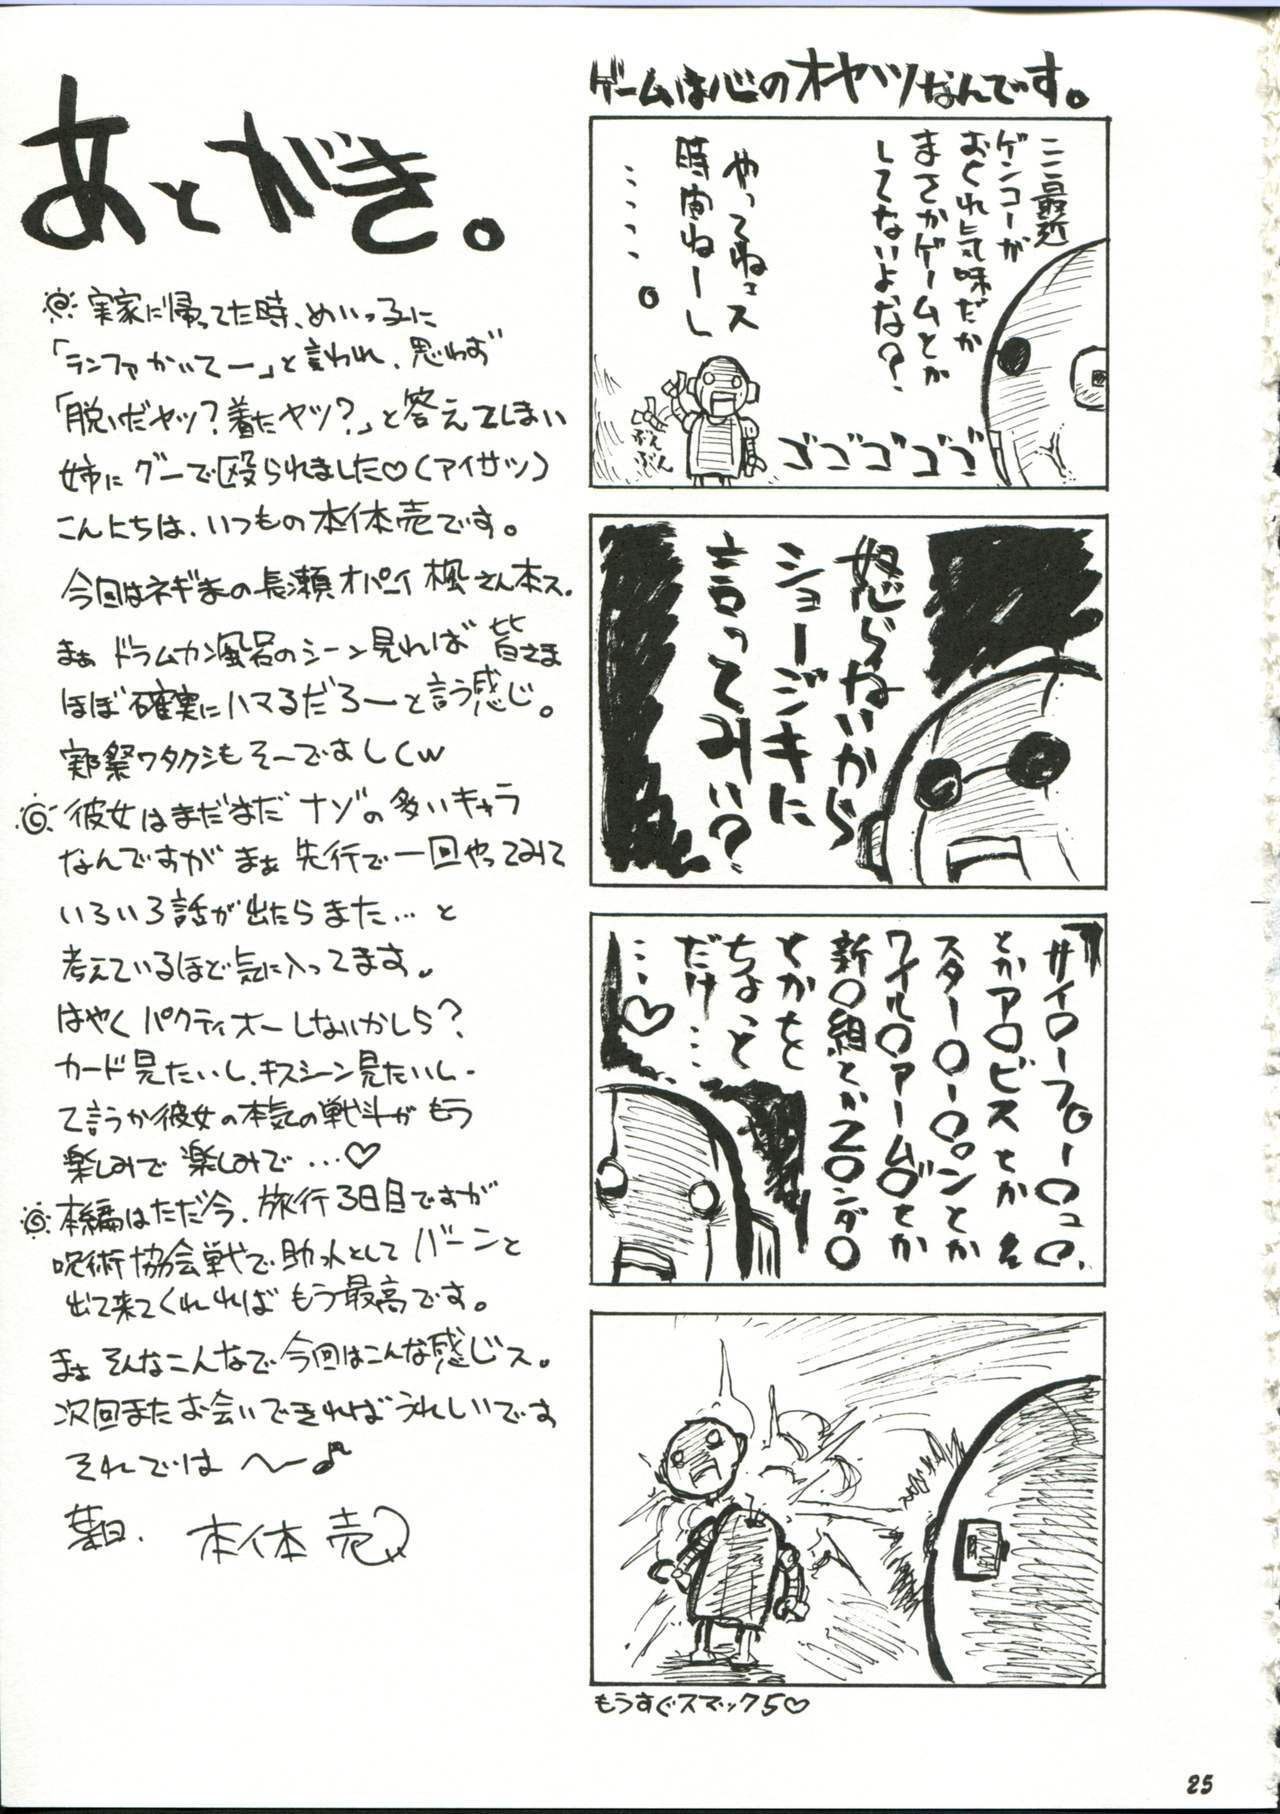 あとがき。
実家に帰ってた時、めいっ子に
「ランファかいてー」と言われ、思わず
「脱いだヤツ？着たヤツ？」と答えてしまい
姉にグーで殴られました♡（アイサツ）
こんにちは、いつもの本体売です。
今回はネギまの長瀬オパーイ楓さん本ス。
まぁドラムカン風呂のシーン見れば皆さま
ほぼ確実にハマるだろーと言う感じ。
実際ワタクシもそーですましくw
彼女はまだまだナゾの多いキャラ
なんですがまぁ先行で一回やってみて
いろいろ話が出たらまた…と
考えているほど気に入ってます。
はやくパクティオーしないかしら？
カード見たいし、キスシーン見たいし、
て言うか彼女の本気の戦斗がもう
楽しみで楽しみで…♡
本編はただ今、旅行3日目ですが
呪術協会戦で助っ人としてバーンと
出て来てくれればもう最高です。
まぁそんなこんなで今回はこんな感じス。
次回またお会いできればうれしいです
それでは〜♪
本体売
ゲームは心のオヤツなんです。
ここ最近
ゲンコーが
おくれ気味だか
まさかゲームとか
してないよな？
やってねェス
時間ねーし
……。
ぶんぶん
ゴゴゴゴゴ
怒らないから
ショージキに
言ってみい？
サイ〇ーフ〇ー〇ュ〇、
とかア〇ビスとか
スター〇ー〇ンとか
ワイル〇アーム〇とか
新〇組とかZ〇ンダ〇
とかをと
ちょっと
だけ…
…♡
もうすぐスマック5♡
25